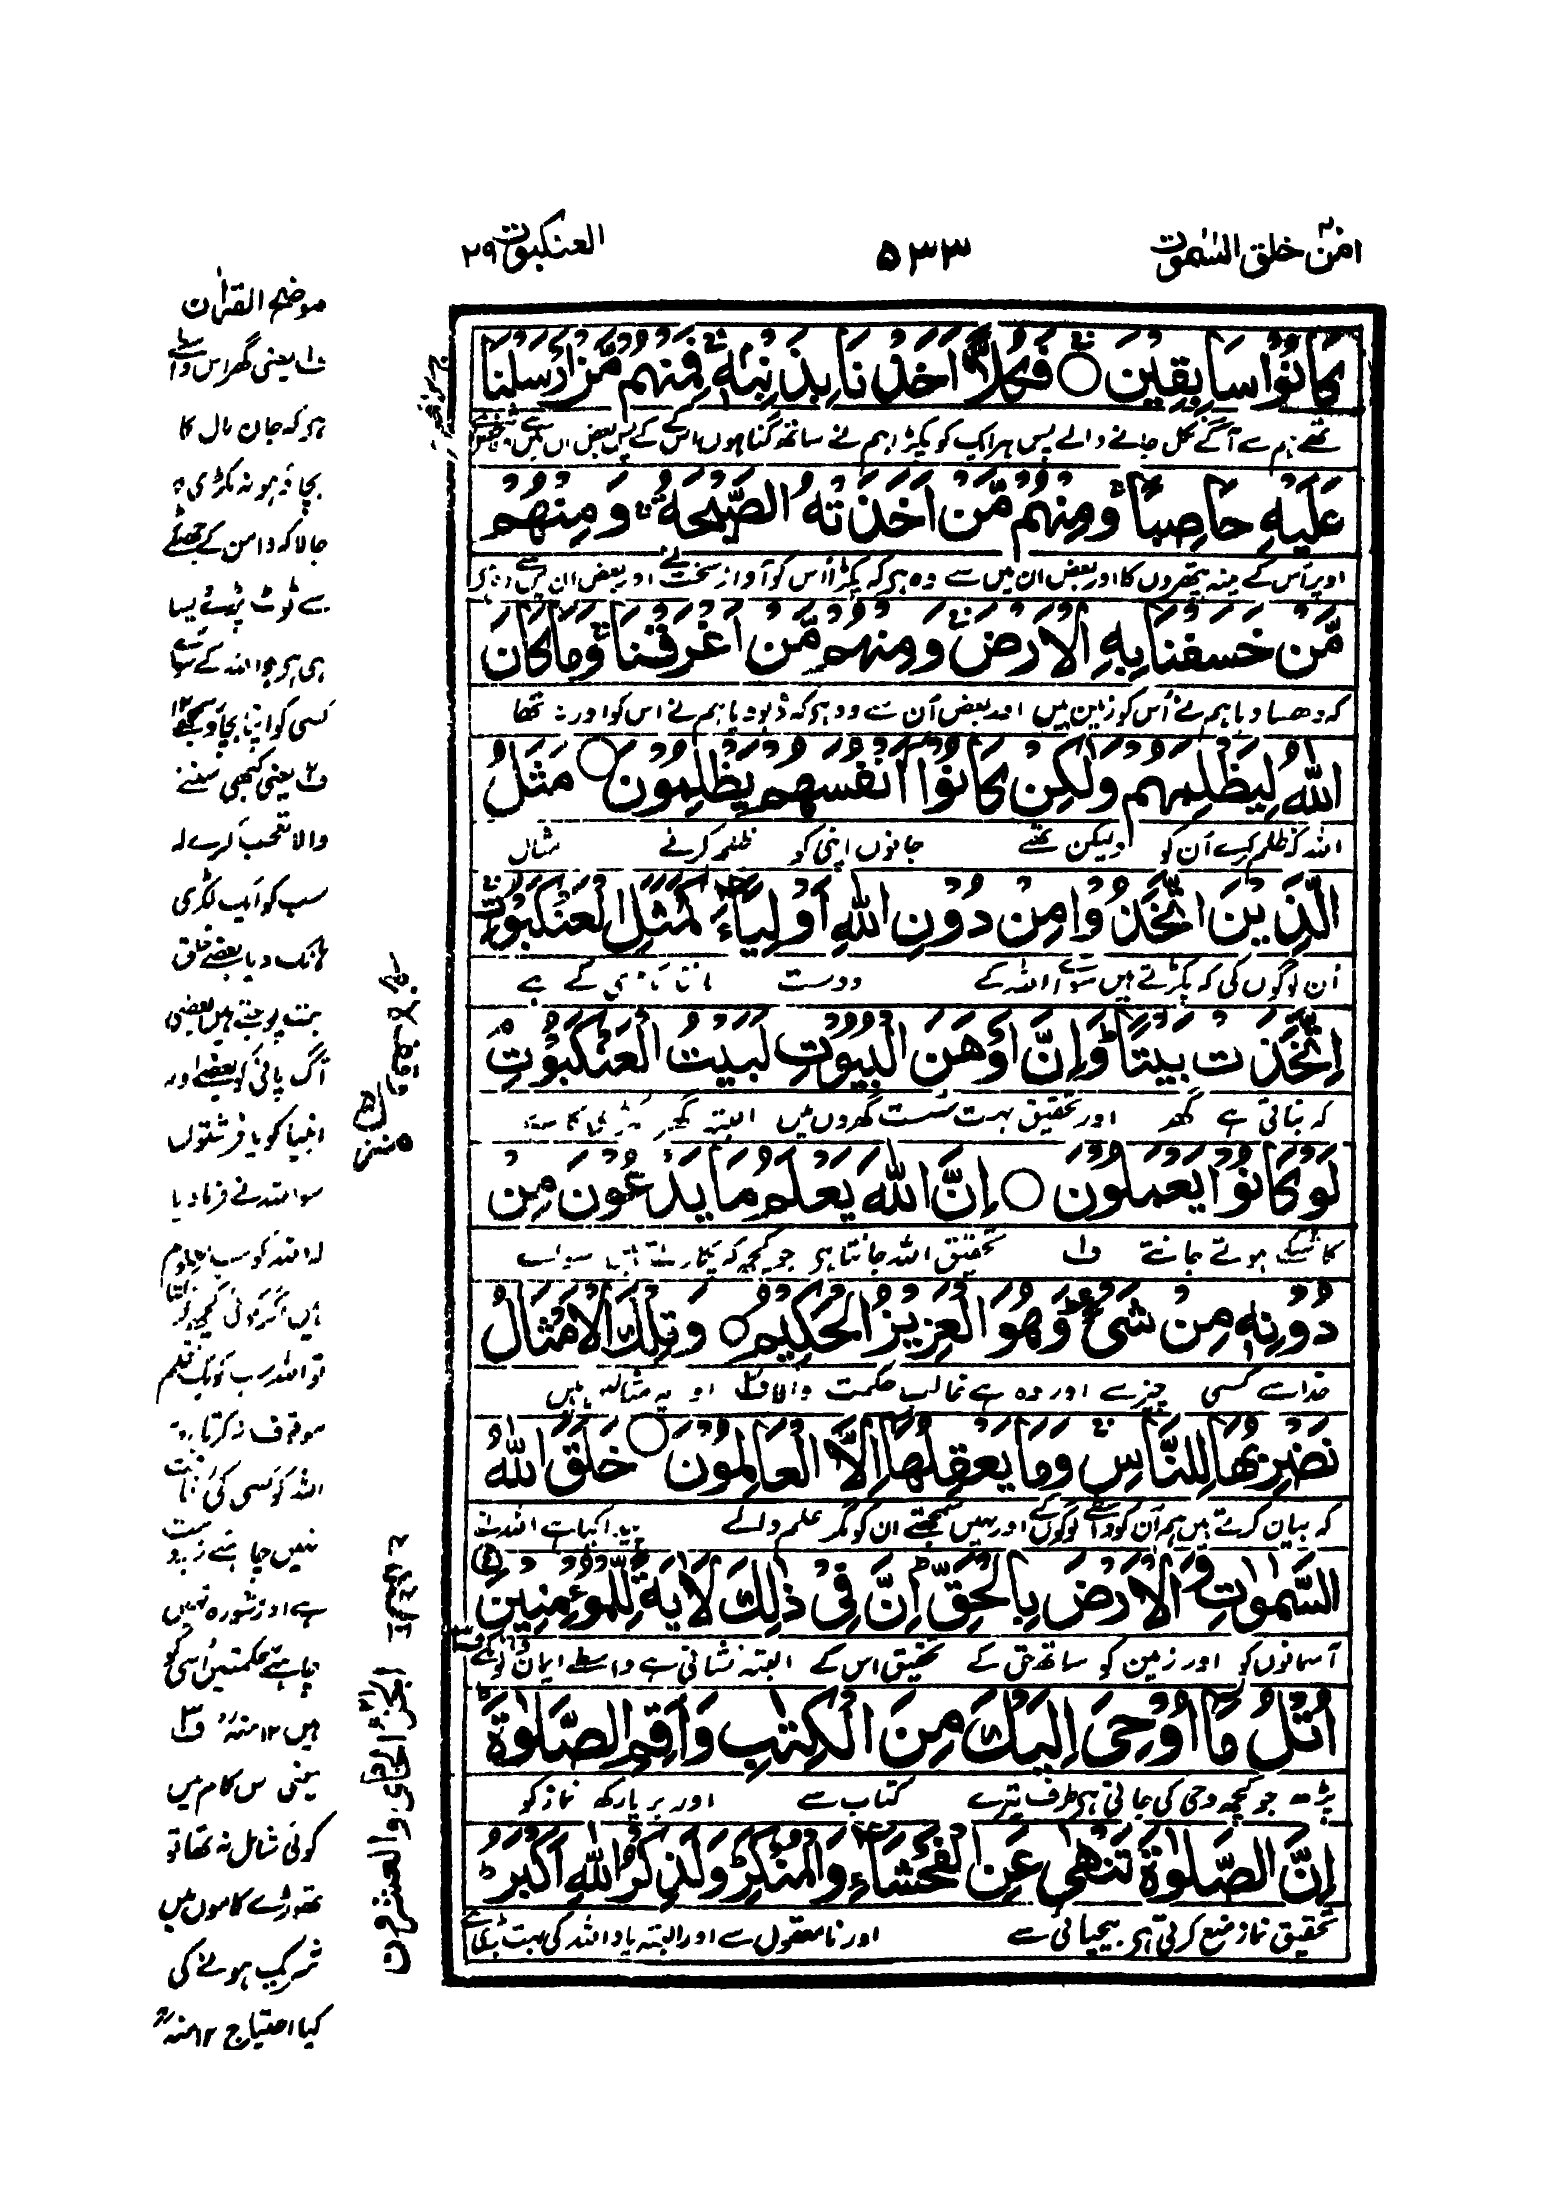 امن خلق السمٰوٰت
٥٣٣
العنکبوت ٢٩
كَانُوْا سَابِقِيْنَ ○ فَكُلًّا اَخَذْنَا بِذَنْۢبِهٖ ۚ فَمِنْهُمْ مَّنْ اَرْسَلْنَا
تھے ہم سے آگے نکل جانے والے پس ہر ایک کو پکڑا ہم نے ساتھ گناہوں اس کے پس بعض ان میں سے
عَلَيْهِ حَاصِبًا ۚ وَمِنْهُمْ مَّنْ اَخَذَتْهُ الصَّيْحَةُ ۚ وَمِنْهُمْ
اوپر اس کے مینہ پتھروں کا اور بعض ان میں سے وہ ہے کہ پکڑا اس کو آواز سخت نے اور بعض ان میں سے
مَّنْ خَسَفْنَا بِهِ الْاَرْضَ ۚ وَمِنْهُمْ مَّنْ اَغْرَقْنَا ۚ وَمَا كَانَ
کہ دھسا دیا ہم نے اس کو زمین میں اور بعض ان سے وہ ہے کہ ڈبو دیا ہم نے اس کو اور نہ تھا
اللّٰهُ لِيَظْلِمَهُمْ وَلٰكِنْ كَانُوْٓا اَنْفُسَهُمْ يَظْلِمُوْنَ ○ مَثَلُ
اللہ کہ ظلم کرے ان کو ولیکن تھے جانوں اپنی کو ظلم کرتے مثال
الَّذِيْنَ اتَّخَذُوْا مِنْ دُوْنِ اللّٰهِ اَوْلِيَآءَ كَمَثَلِ الْعَنْكَبُوْتِ ۚ
ان لوگوں کی کہ پکڑتے ہیں سوائے اللہ کے دوست مانند مکڑی کے ہے
اِتَّخَذَتْ بَيْتًا ؕ وَاِنَّ اَوْهَنَ الْبُيُوْتِ لَبَيْتُ الْعَنْكَبُوْتِ ۘ
کہ بناتی ہے گھر اور تحقیق بہت سست گھروں میں البتہ گھر مکڑی کا ہے
لَوْ كَانُوْا يَعْلَمُوْنَ ○ اِنَّ اللّٰهَ يَعْلَمُ مَا يَدْعُوْنَ مِنْ
کاشکے ہوتے جانتے ف۱ تحقیق اللہ جانتا ہے جو کچھ کہ پکارتے ہیں سوائے
دُوْنِهٖ مِنْ شَيْءٍ ؕ وَهُوَ الْعَزِيْزُ الْحَكِيْمُ ○ وَتِلْكَ الْاَمْثَالُ
خدا سے کسی چیز سے اور وہ ہے غالب حکمت والا ف۲ اور یہ مثالیں ہیں
نَضْرِبُهَا لِلنَّاسِ ۚ وَمَا يَعْقِلُهَآ اِلَّا الْعَالِمُوْنَ ○ خَلَقَ اللّٰهُ
کہ بیان کرتے ہیں ہم ان کو واسطے لوگوں کے اور نہیں سمجھتے ان کو مگر علم والے پیدا کیا ہے اللہ نے
السَّمٰوٰتِ وَالْاَرْضَ بِالْحَقِّ ؕ اِنَّ فِيْ ذٰلِكَ لَاٰيَةً لِّلْمُؤْمِنِيْنَ
آسمانوں کو اور زمین کو ساتھ حق کے تحقیق اس کے البتہ نشانی ہے واسطے ایمان والوں کے
اُتْلُ مَآ اُوْحِيَ اِلَيْكَ مِنَ الْكِتٰبِ وَاَقِمِ الصَّلٰوةَ ؕ
پڑھ جو کچھ وحی کی جاتی ہے طرف تیرے کتاب سے اور برپا رکھ نماز کو
اِنَّ الصَّلٰوةَ تَنْهٰى عَنِ الْفَحْشَآءِ وَالْمُنْكَرِ ؕ وَلَذِكْرُ اللّٰهِ اَكْبَرُ ؕ
تحقیق نماز منع کرتی ہے بیحیائی سے اور نامعقول سے اور البتہ یاد اللہ کی بہت بڑی ہے
موضح القرآن
ف۱ یعنی گھر اس واسطے
ہے کہ جان مال کا
بچاؤ ہو نہ مکڑی کا
جالا کہ دامن کے جھٹکے
سے ٹوٹ پڑے ایسا
ہی ہے جو اللہ کے سوائے
کسی کو اپنا بچاؤ سمجھے ۱۲
ف۲ یعنی کبھی سننے
والا تعجب کرے کہ
سب کو ایک لکڑی
ہانک دیا بعضے خلق
بت پوجتے ہیں بعضی
آگ پانی بعضے اور
انبیا کو یا فرشتوں
سو اللہ نے فرما دیا
کہ اللہ کو سب معلوم
ہیں اگر کوئی کچھ کر
تو اللہ سب کو یک قلم
موقوف نہ کرتا
اللہ کو کسی کی
نہیں چاہئے زبردست
ہے اور مشورہ نہیں
چاہئے حکمتیں اسی کو
ہیں ۱۲ منہ ف۳
یعنی اس کام میں
کوئی شامل نہ تھا تو
تھوڑے کاموں میں
شریک ہونے کی
کیا احتیاج ۱۲ منہ
الجزء الحادی والعشرون